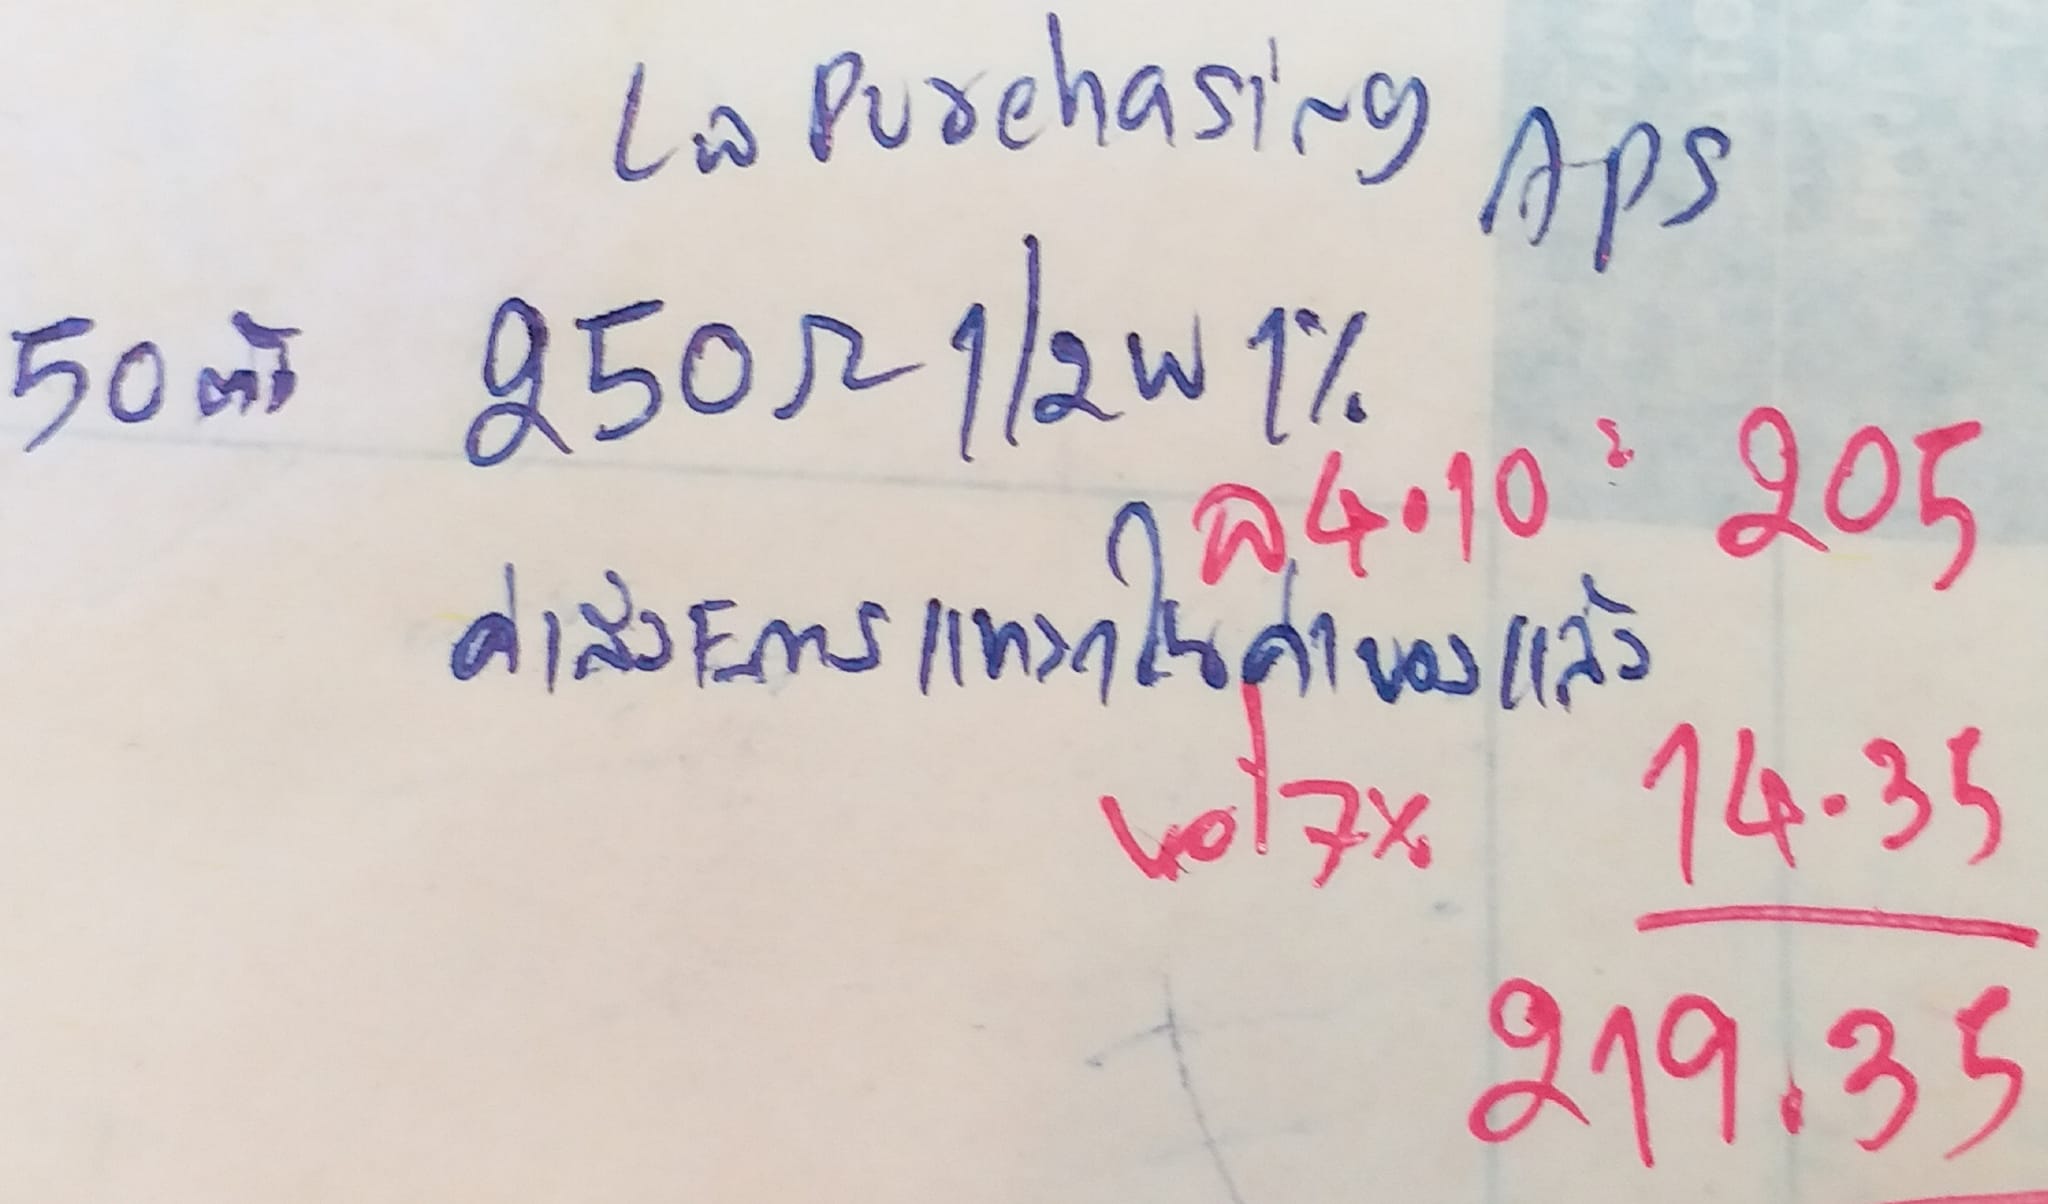 L@ Purchasing APS
50 ตัว 250Ω 1/2W 1%
@ 4.10 = 205
ค่าส่ง EMS แทรกในค่าของแล้ว
vat 7% 14.35
219.35